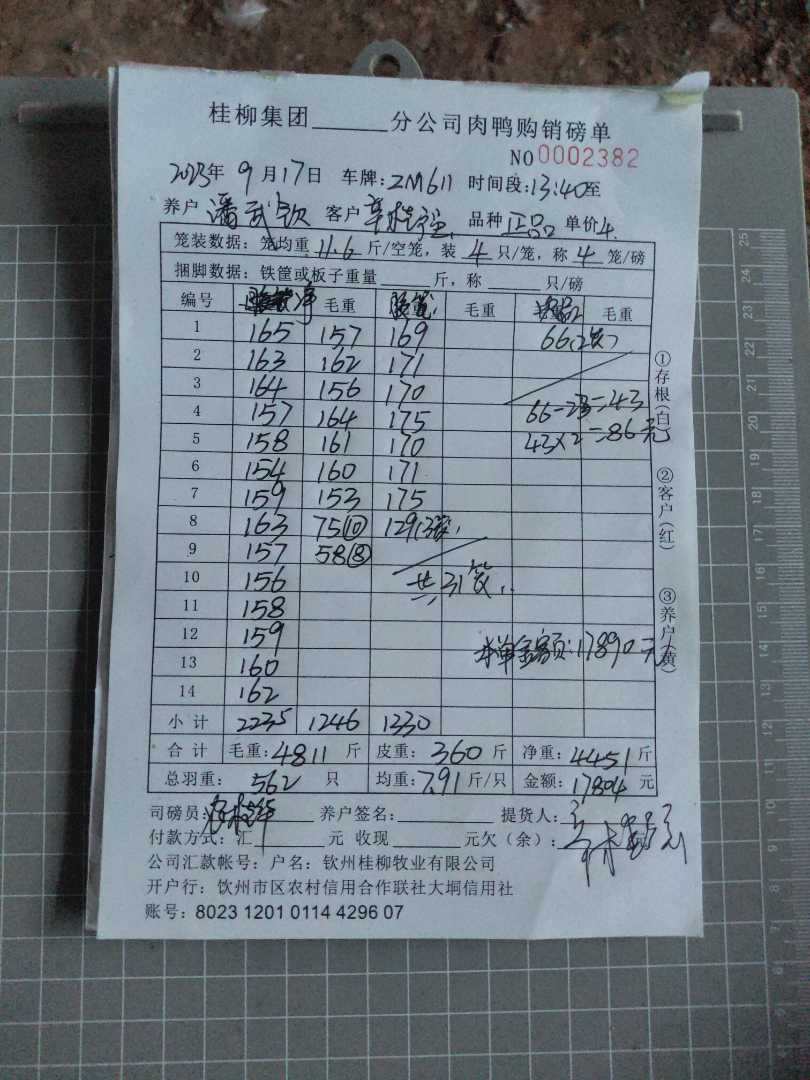 桂柳集团______分公司肉鸭购销磅单
NO 0002382
2023年 9 月 17 日 车牌:ZM611 时间段:13:40至
养户 潘武钦 客户 品种 正品 单价 4.
笼装数据: 笼均重 11.6 斤/空笼, 装 4 只/笼, 称 4 笼/磅
捆脚数据: 铁筐或板子重量______斤, 称______只/磅
编号 净 毛重 毛重 毛重
1 165 157 169 66(2笼)
2 163 162 171
3 164 156 170
4 157 164 175 66-23=43
5 158 161 170 43×2=86元
6 154 160 171
7 159 153 175
8 163 75⑩ 129(3笼)
9 157 58⑧
10 156 共31笼
11 158
12 159 本单金额:17890元
13 160
14 162
小计 2235 1246 1330
合计 毛重:4811 斤 皮重: 360 斤 净重:4451斤
总羽重: 562 只 均重:7.91斤/只 金额:17804 元
司磅员: 养户签名: 提货人:
付款方式: 汇______元 收现______元欠(余):
公司汇款帐号: 户名: 钦州桂柳牧业有限公司
开户行: 钦州市区农村信用合作联社大垌信用社
账号: 8023 1201 0114 4296 07
①存根(白) ②客户(红) ③养户(黄)
25
24
23
22
21
20
19
18
17
16
15
14
13
12
11
10
9
8
7
6
5
4